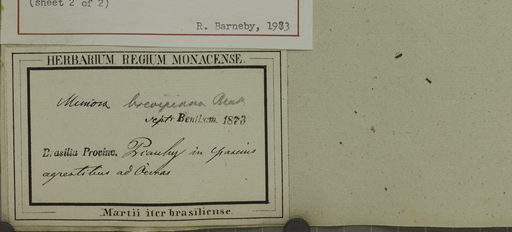 (sheet 2 of 2)
R. Barneby, 1983
HERBARIUM REGIUM MONACENSE.
Mimosa brevipinna Benth
sept. Benthom. 1873
Brasilia Provinc. Piauhy in pascuis
agrestibus ad Oeiras
Martii iter brasiliense.